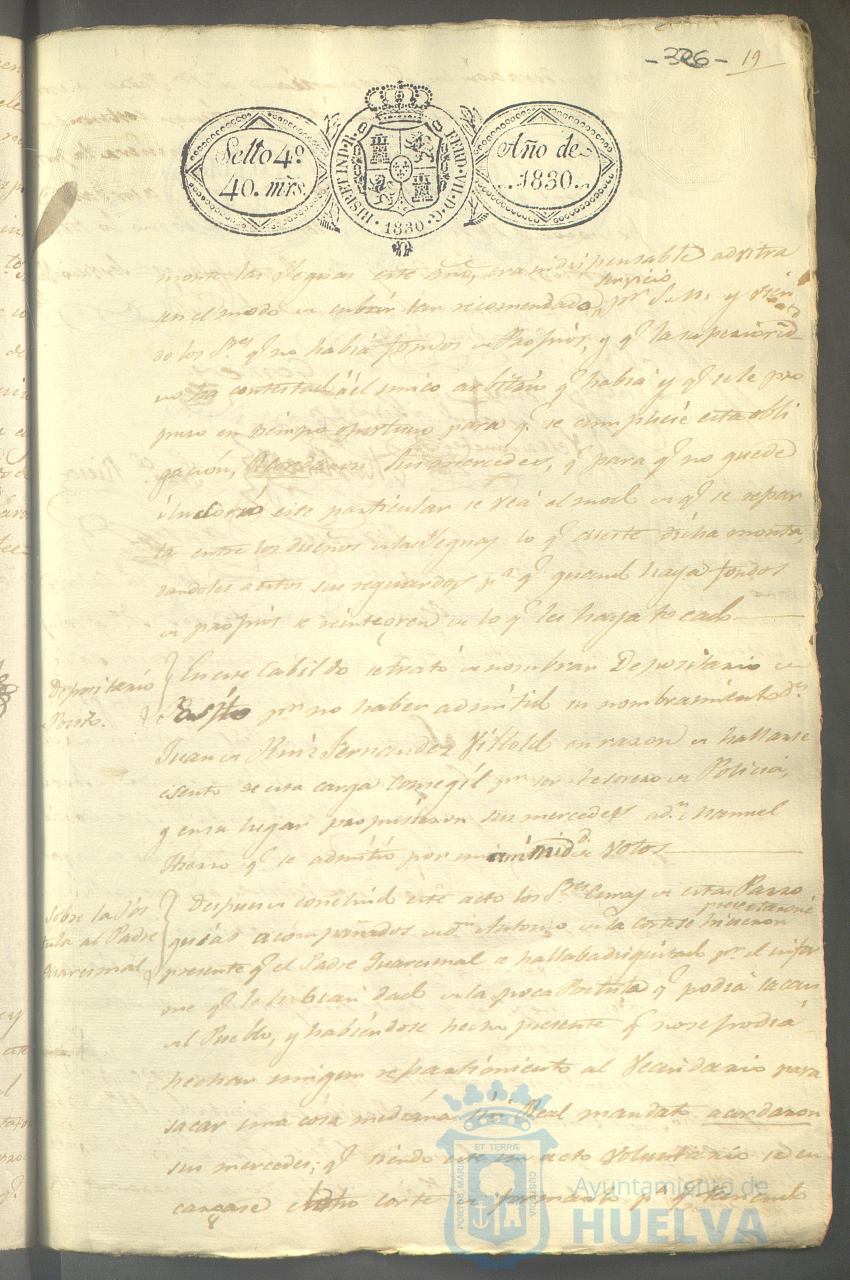 -326- 19
Sello 4º
40. mrs.
HISP. ET IND. R. FERD. VII. D. G.
1830
Año de
1830.
las Yeguas este año, era indispensable
servicio
en el modo de cubrir tan recomendado, pr. S. M. y
do los Sres. qe. no había fondos de Propios, y qe. la superiorid
no ha contestado al único arbitrio qe. había y qe. se le pro
puso en tiempo oportuno para qe. se cumpliese esta obli
gación, Acordaron Sus mercedes, qe. para qe. no quede
ilusorio este particular se vea el modo de qe. se repar
ta entre los dueños de las Yeguas lo qe. dicha monta,
dandoles a estos sus resguardos pa. qe. quando haya fondos
de propios se reintegren de lo qe. les haya tocado
Depositario
de Posto.
En este Cabildo se trató de nombrar Depositario de
pr. no haber admitido su nombramiento Dn.
Juan de Ruiz Fernandez en razon de hallarse
esento de esta carga Consegíl pr. ser tesorero de Policía,
y en su lugar propusieron sus mercedes a dn. Manuel
Hierro qe. se admitió por unanimidd. de votos
Sobre la Pos
tula al Padre
Quaresmal
Despues de concluido este acto los Sres. Curas de estas Parro
quias acompañados de dn. Antonio de la Corte se hicieron
presente qe. el Padre Quaresmal se hallaba disgustado pr. el infor
me qe. le habían dado de la poca Postula qe. podía sacar
del Pueblo, y habiéndose hecho presente qe. no se podía
hechar ningun repartimiento al Vecindario para
sacar una cosa mediana sin Real mandato acordaron
sus mercedes, qe. siendo este un acto voluntario se en
cargase dicho Corte de pa. qe.
PORTUS MARIS ET TERRAE CUSTODIA
Ayuntamiento de
HUELVA